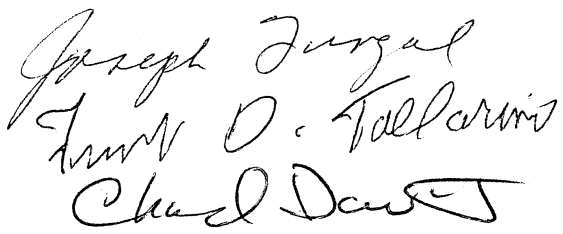 Joseph Furgal
Frank D. Tallarino
Chad